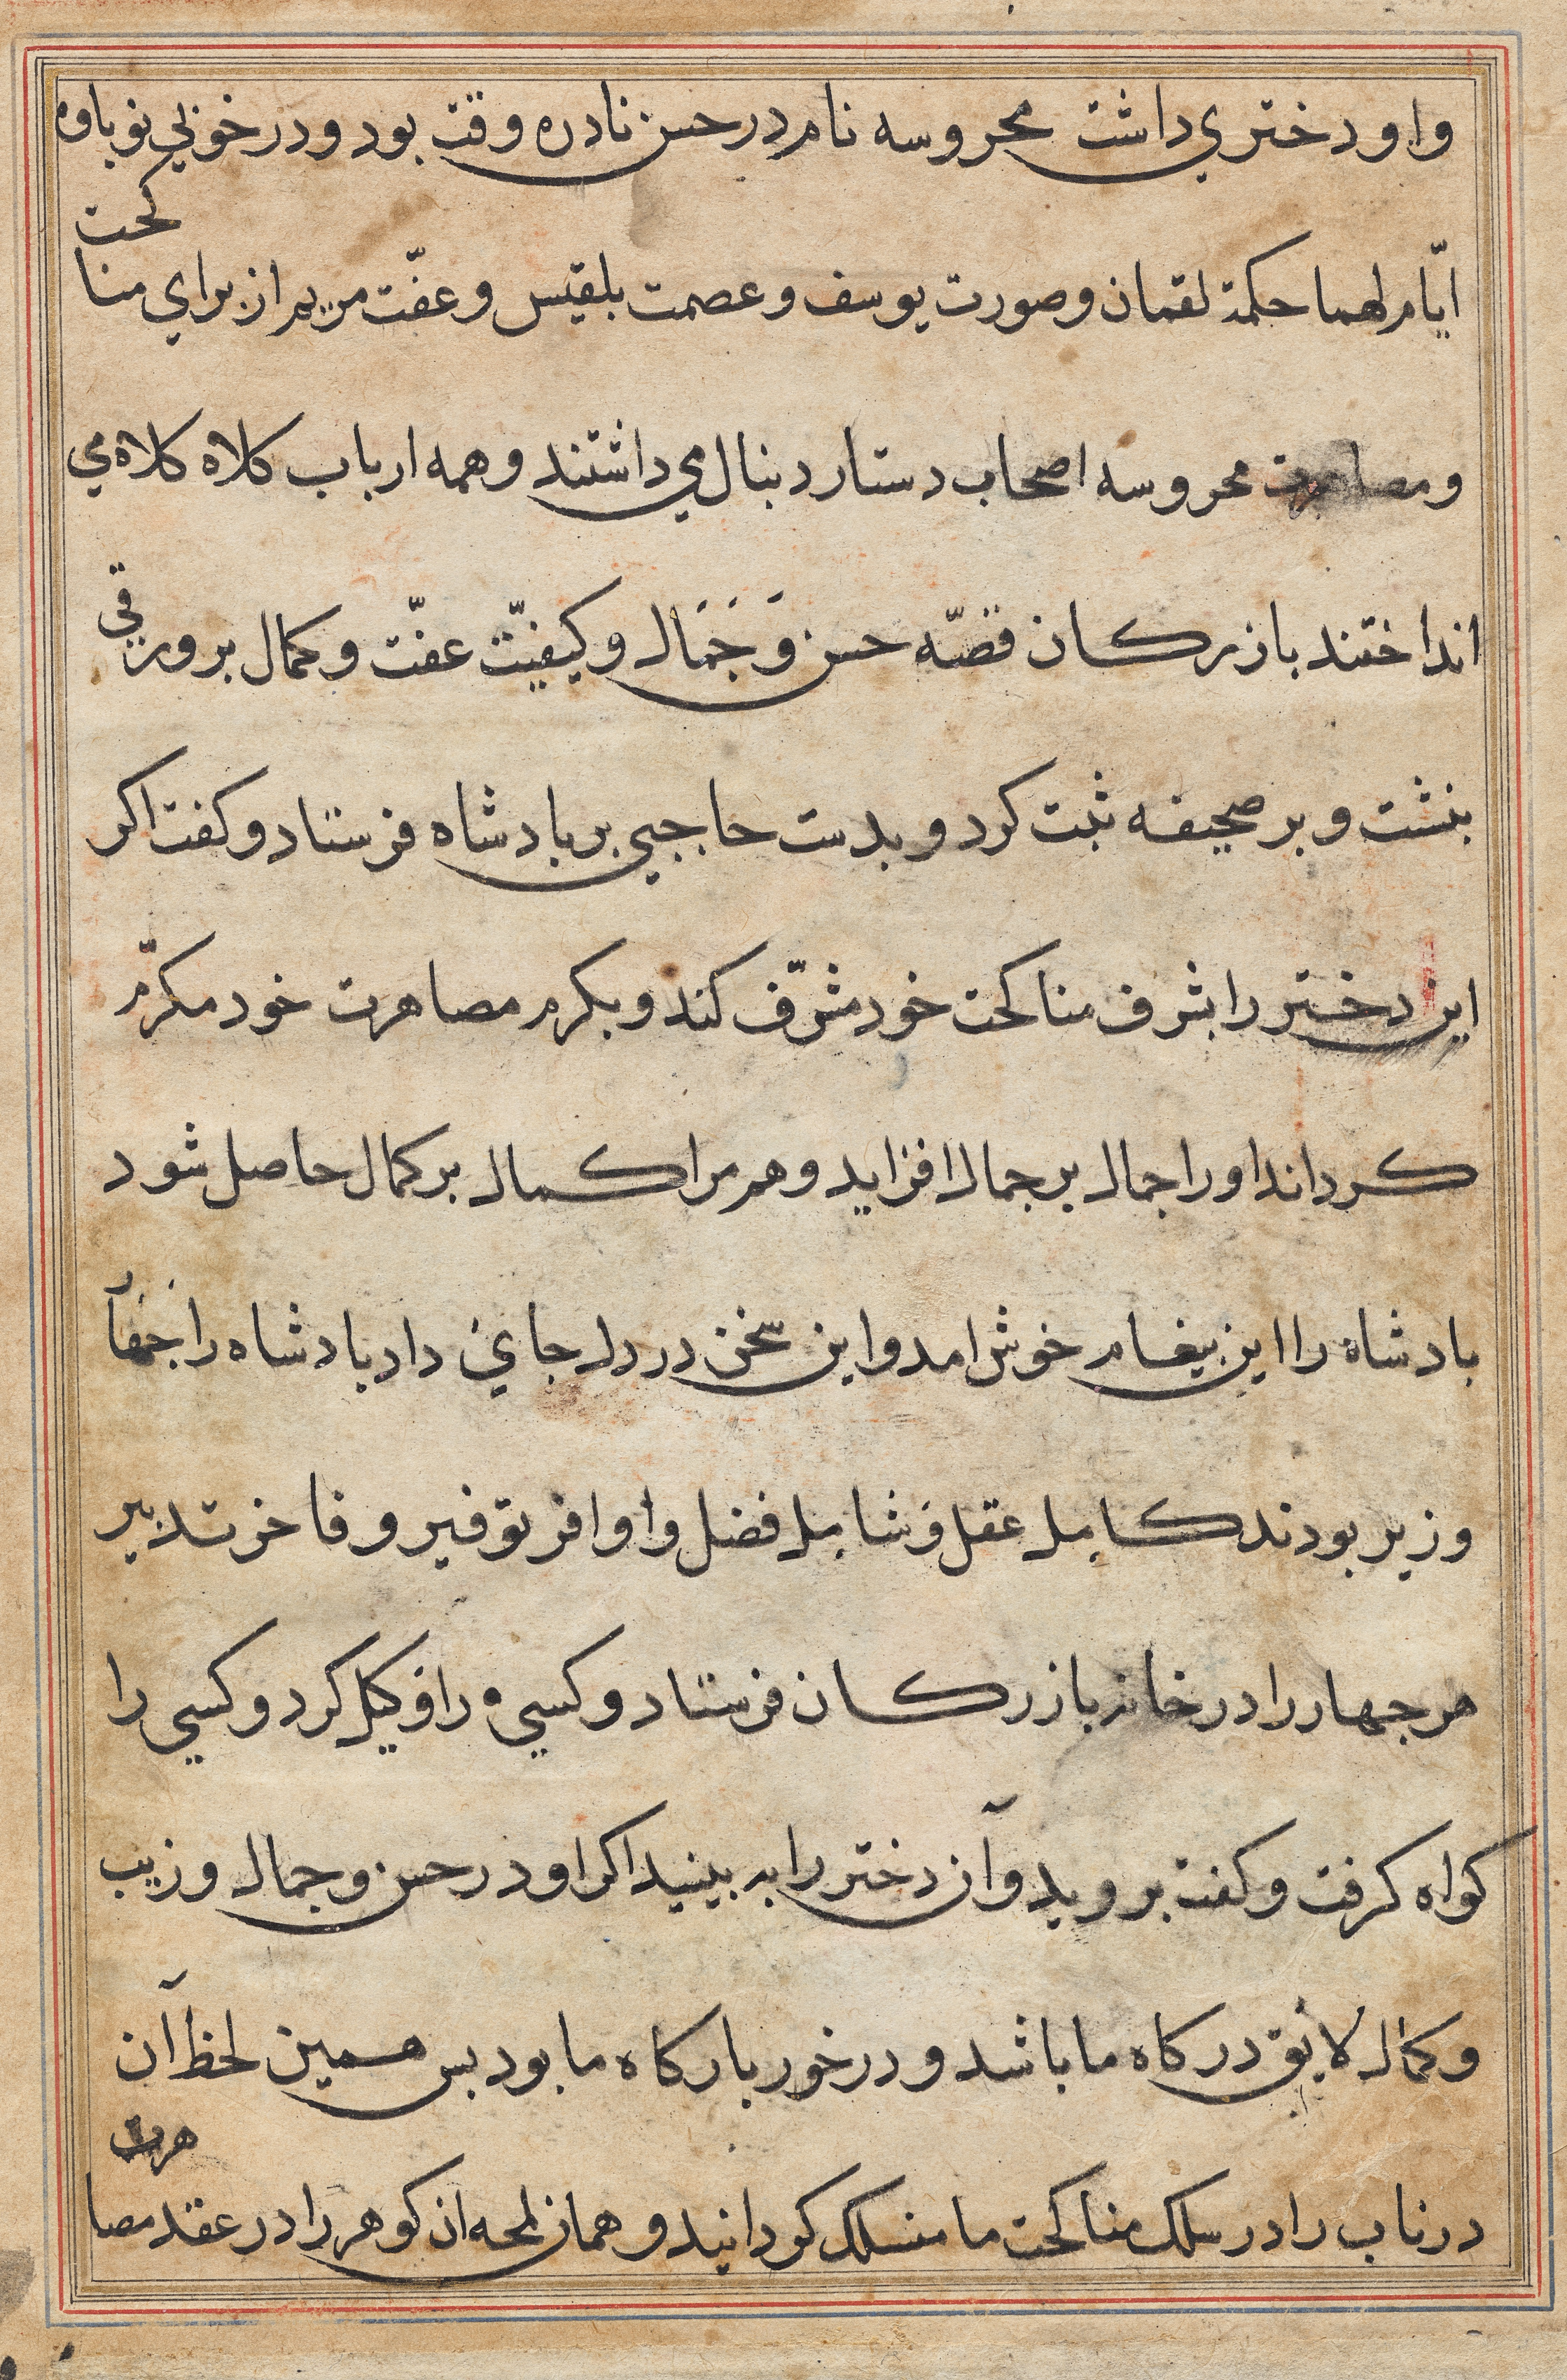 واو دختري داشت محروسه نام در حسن نادره وقت بود و در خوبي نوباوه
ايّام لهما حكمة لقمان وصورت يوسف وعصمت بلقيس وعفّت مريم از براي مناكحت
ومصاهرت محروسه اصحاب دستار دنبال مي داشتند وهمه ارباب كلاه كلاه مي
انداختند بازركان قصّه حسن وَجَمَال وكيفيّت عفّت وكمال بر ورقي
بنشت وبر صحيفه ثبت كرد وبدست حاجبي بر بادشاه فرستاد وكفت اكر
اين دختر را بشرف مناكحت خود مشرّف كند وبكرم مصاهرت خود مكرّم
كرداند اورا جمال بر جمال افزايد وهم مرا كمال بر كمال حاصل شود
بادشاه را اين بيغام خوش امد واين سخن در دل جاي داد بادشاه را
وزير بودند كامل عقل وشامل فضل واوافر توفير وفاخر تدبير
هر جهار را در خانه بازركان فرستاد وكسي را وكيل كرد وكسي را
كواه كرفت وكفت برويد وآن دختر را به بينيد اكر او در حسن وجمال وزيب
وكمال لايق دركاه ما باشد و در خور باركاه ما بود بس همين لحظ آن
درناب را در سلك مناكحت ما منسلك كردانيد وهمان لمحه ان كوهر را در عقد مصاهرت